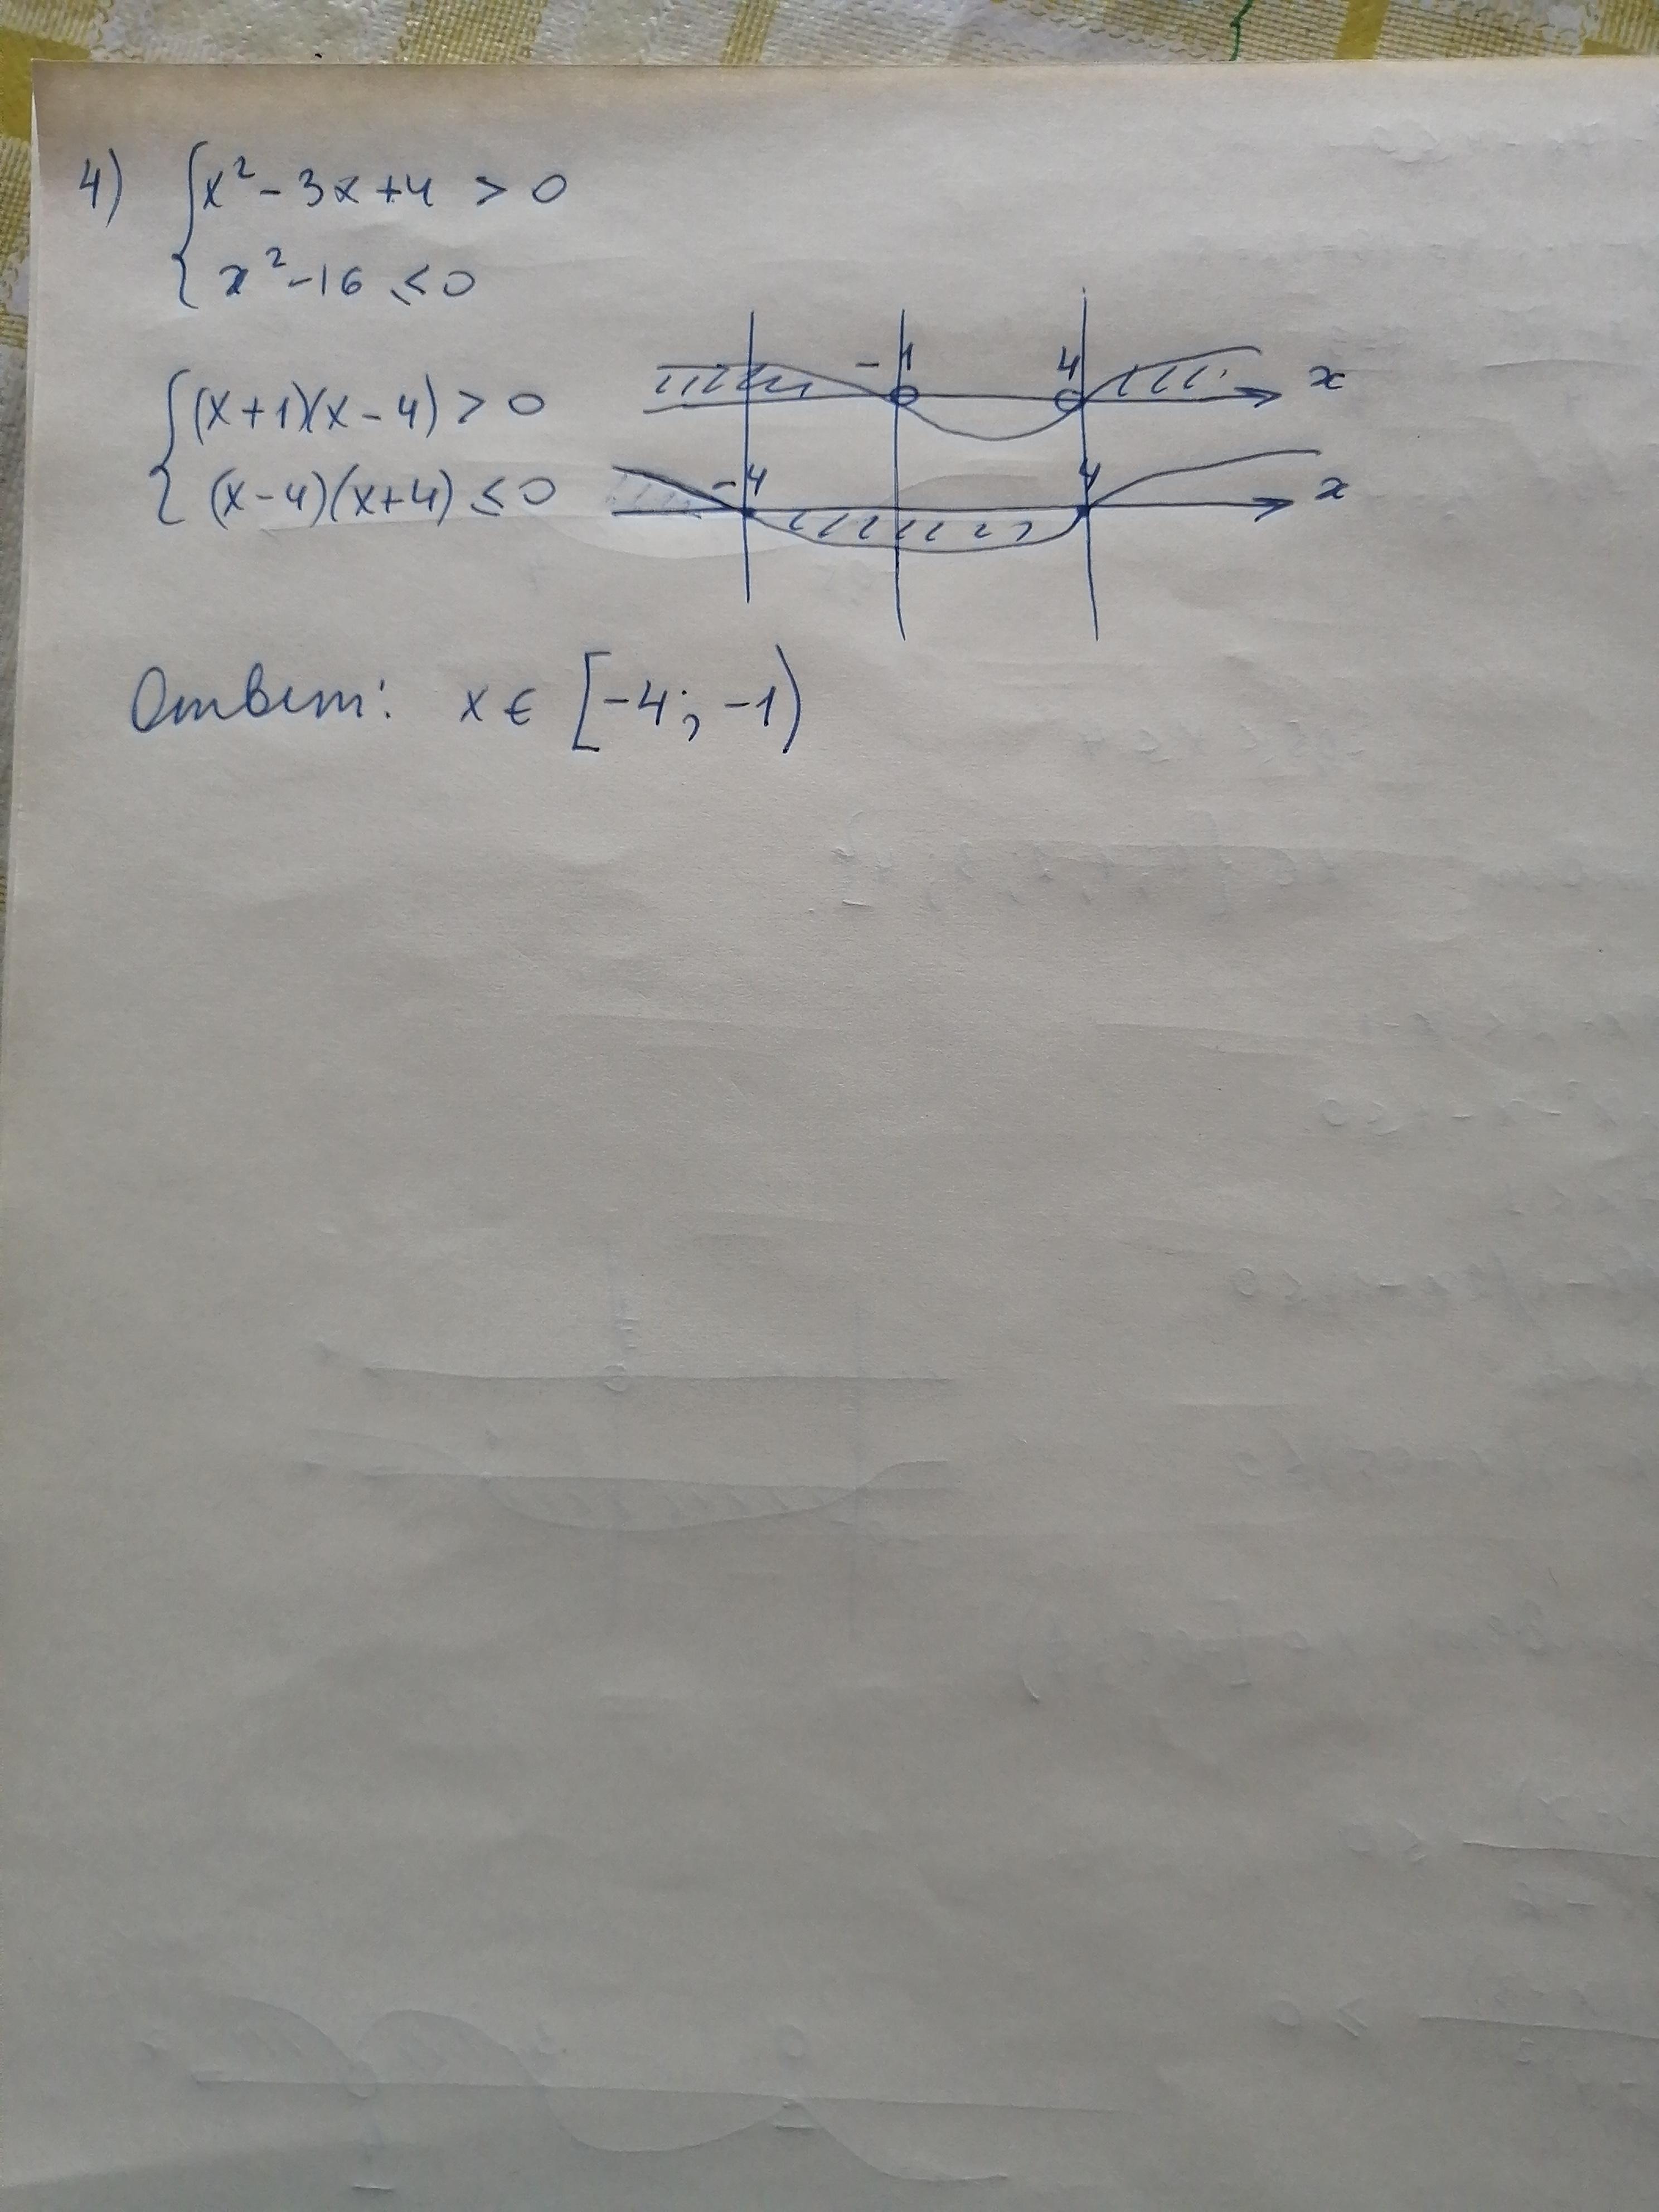 4) { x² - 3x + 4 > 0
x² - 16 ≤ 0
{ (x+1)(x-4) > 0
(x-4)(x+4) ≤ 0
-1 4 x
-4 4 x
Ответ: x ∈ [-4; -1)